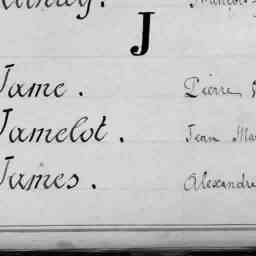 J
Jame. Pierre
Jamelot. Jean
James. Alexandre